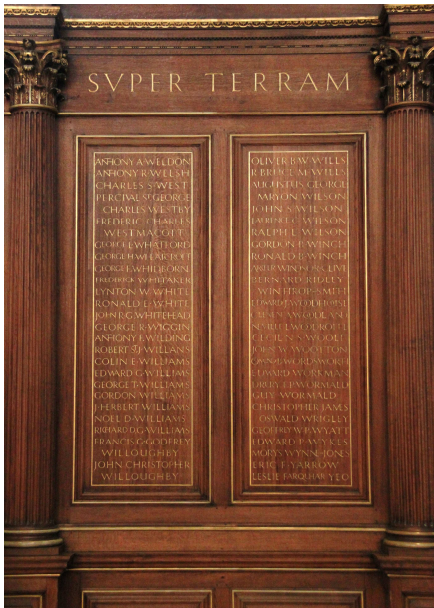 SVPER TERRAM
ANTHONY A WELDON
ANTHONY R WELSH
CHARLES S WEST
PERCIVAL ST GEORGE
CHARLES WESTBY
FREDERIC CHARLES
WESTMACOTT
GEORGE E WHATFORD
GEORGE H
GEORGE E WHITEHORN
FREDERICK WHITAKER
LYNTON W WHITE
RONALD E WHITE
JOHN R G WHITEHEAD
GEORGE R WIGGIN
ANTHONY E WILDING
ROBERT WILLANS
COLIN E WILLIAMS
EDWARD G WILLIAMS
GEORGE T WILLIAMS
GORDON WILLIAMS
J HERBERT WILLIAMS
NOEL D WILLIAMS
RICHARD D G WILLIAMS
FRANCIS G GODFREY
WILLOUGHBY
JOHN CHRISTOPHER
WILLOUGHBY
OLIVER B W WILLS
R BRUCE M WILLS
AUGUSTUS GEORGE
MARYON WILSON
JOHN S WILSON
WILSON
RALPH E WILSON
GORDON B WINCH
RONALD B WINCH
WINDSOR CLIVE
BERNARD RIDLEY
WINTHROP-SMITH
EDWARD T WOODHOUSE
WOODLAND
NEVILLE L WOODROFFE
CECIL N S WOOLF
JOHN W WOOTTON
OWEN WORDSWORTH
EDWARD WORKMAN
WORMALD
GUY WORMALD
CHRISTOPHER JAMES
OSWALD WRIGLEY
GEOFFREY W P WYATT
EDWARD P WYKES
MORYS WYNN-JONES
ERIC F YARROW
LESLIE FARQUHAR YEO